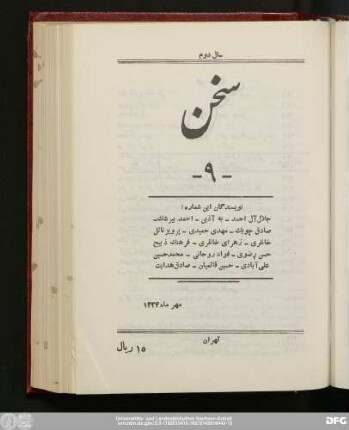 سال دوم
سخن
-۹-
نویسندگان این شماره:
جلال آل احمد - به آذین - احمد بیرشک
صادق چوبک - مهدی حمیدی - پرویز ناتل
خانلری - زهرای خانلری - فرهنگ ذبیح
حسن رضوی - فواد روحانی - محمدحسین
علی آبادی - حسین قائمیان - صادق هدایت
مهر ماه ۱۳۲۴
تهران
۱۵ ریال
Universitäts- und Landesbibliothek Sachsen-Anhalt
DFG